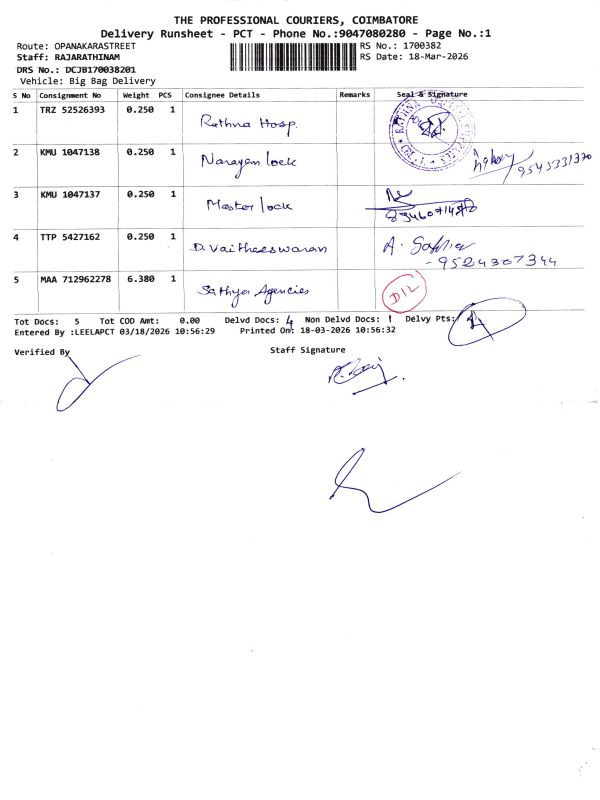 THE PROFESSIONAL COURIERS, COIMBATORE
Delivery Runsheet - PCT - Phone No.:9047080280 - Page No.:1
Route: OPANAKARASTREET RS No.: 1700382
Staff: RAJARATHINAM RS Date: 18-Mar-2026
DRS No.: DCJB170038201
Vehicle: Big Bag Delivery
S No Consignment No Weight PCS Consignee Details Remarks Seal & Signature
1 TRZ 52526393 0.250 1 Rathna Hosp.
2 KMU 1047138 0.250 1 Narayan lock
3 KMU 1047137 0.250 1 Master lock
4 TTP 5427162 0.250 1 D. Vaitheeswaran
9524307344
5 MAA 712962278 6.380 1 Sathya Agencies D12
Tot Docs: 5 Tot COD Amt: 0.00 Delvd Docs: 4 Non Delvd Docs: 1 Delvy Pts: 4
Entered By :LEELAPCT 03/18/2026 10:56:29 Printed On: 18-03-2026 10:56:32
Verified By Staff Signature